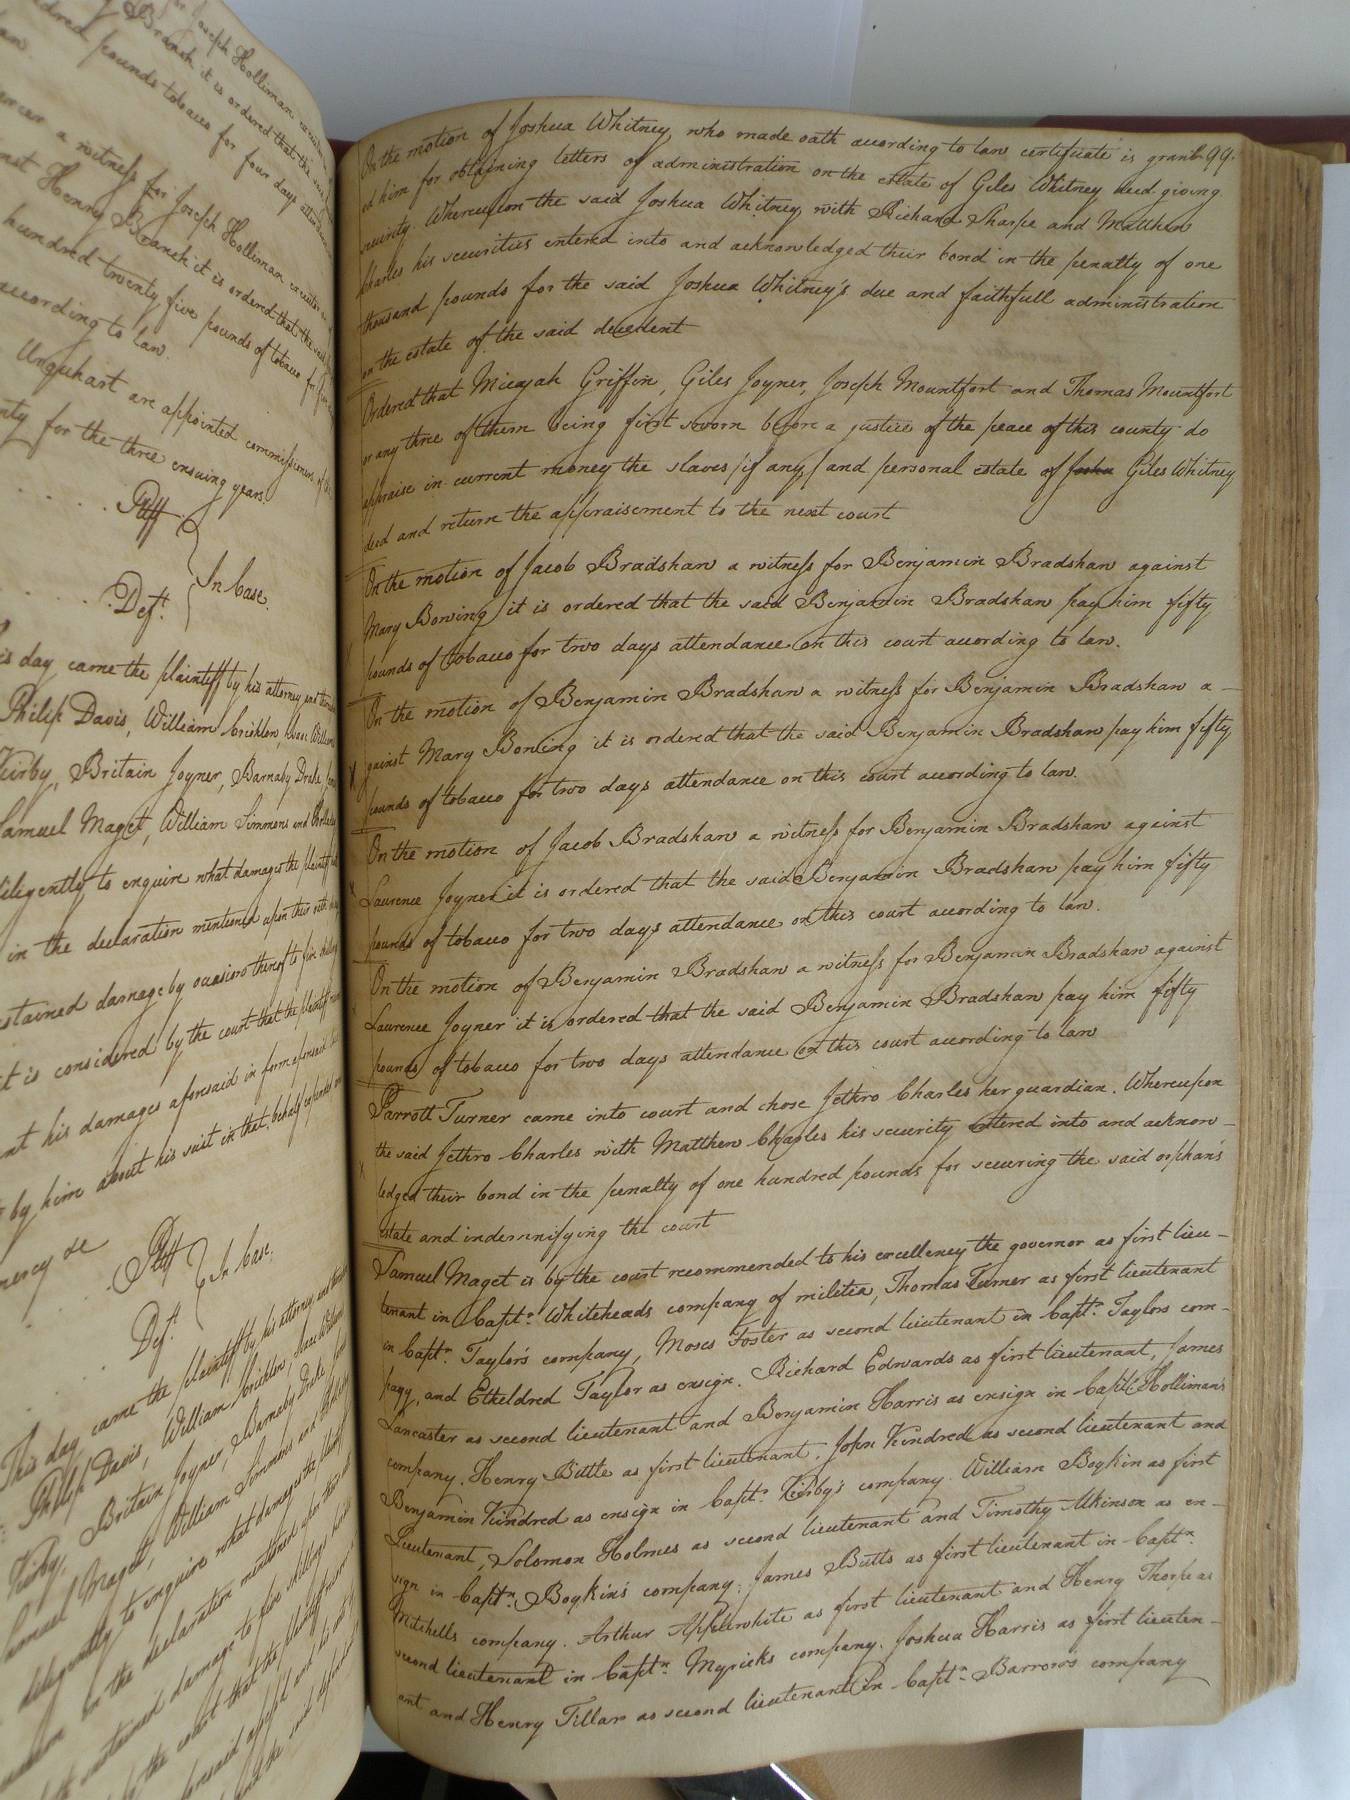 Joseph Holliman
Branch it is ordered that the said
hundred pounds tobacco for four days attendance
a witness for Joseph Holliman executor
against Henry Branch it is ordered that the said
hundred twenty five pounds of tobacco for five
according to law.
Urquhart are appointed commissioners of
county for the three ensuing years.
Pltff
In Case.
Deft.
this day came the plaintiff by his attorney and
Philip Davis, William Crichlow,
Kirby, Britain Joyner, Barnaby Drake,
Samuel Maget, William Simmons and
diligently to enquire what damages the plaintiff
in the declaration mentioned upon their oath
sustained damage by occasion thereof to five shillings
it is considered by the court that the plaintiff
his damages aforesaid in form aforesaid
by him about his suit in that behalf expended
mercy &c
Pltff
In Case.
Deft.
This day came the plaintiff by his attorney
Philip Davis, William Crichlow,
Kirby, Britain Joyner, Barnaby Drake
Samuel Maget, William Simmons and
diligently to enquire what damages the plaintiff
in the declaration mentioned upon their oath
sustained damage to five shillings
by the court that the plaintiff
99.
On the motion of Joshua Whitney, who made oath according to law certificate is grant-
ed him for obtaining letters of administration on the estate of Giles Whitney decd giving
security. Whereupon the said Joshua Whitney with Richard Sharpe and Matthew
Charles his securities entered into and acknowledged their bond in the penalty of one
thousand pounds for the said Joshua Whitney's due and faithfull administration
on the estate of the said decedent
Ordered that Micajah Griffin, Giles Joyner, Joseph Mountfort and Thomas Mountfort
or any three of them being first sworn before a justice of the peace of this county do
appraise in current money the slaves / if any / and personal estate of Joshu Giles Whitney
decd and return the appraisement to the next court
On the motion of Jacob Bradshaw a witness for Benjamin Bradshaw against
Mary Bowing it is ordered that the said Benjamin Bradshaw pay him fifty
pounds of tobacco for two days attendance on this court according to law.
On the motion of Benjamin Bradshaw a witness for Benjamin Bradshaw a-
gainst Mary Bowing it is ordered that the said Benjamin Bradshaw pay him fifty
pounds of tobacco for two days attendance on this court according to law.
On the motion of Jacob Bradshaw a witness for Benjamin Bradshaw against
Laurence Joyner it is ordered that the said Benjamin Bradshaw pay him fifty
pounds of tobacco for two days attendance on this court according to law.
On the motion of Benjamin Bradshaw a witness for Benjamin Bradshaw against
Laurence Joyner it is ordered that the said Benjamin Bradshaw pay him fifty
pounds of tobacco for two days attendance on this court according to law
Parrott Turner came into court and chose Jethro Charles her guardian. Whereupon
the said Jethro Charles with Matthew Charles his security entered into and acknow-
ledged their bond in the penalty of one hundred pounds for securing the said orphan's
estate and indemnifying the court
Samuel Maget is by the court recommended to his excellency the governor as first lieu-
tenant in Captn. Whiteheads company of militia, Thomas Turner as first lieutenant
in Captn. Taylor's company, Moses Foster as second lieutenant in Captn. Taylors com-
pany, and Etheldred Taylor as ensign. Richard Edwards as first lieutenant, James
Lancaster as second lieutenant and Benjamin Harris as ensign in Captn. Holliman's
company. Henry Bittle as first lieutenant, John Kindred as second lieutenant and
Benjamin Kindred as ensign in Captn. Kirby's company. William Boykin as first
Lieutenant, Solomon Holmes as second lieutenant and Timothy Atkinson as en-
sign in Captn. Boykin's company. James Butts as first lieutenant in Captn.
Mitchells company. Arthur Applewhite as first lieutenant and Henry Thorpe as
second lieutenant in Captn. Myricks company. Joshua Harris as first lieuten-
ant and Henry Tillar as second lieutenant in Captn. Barrows company